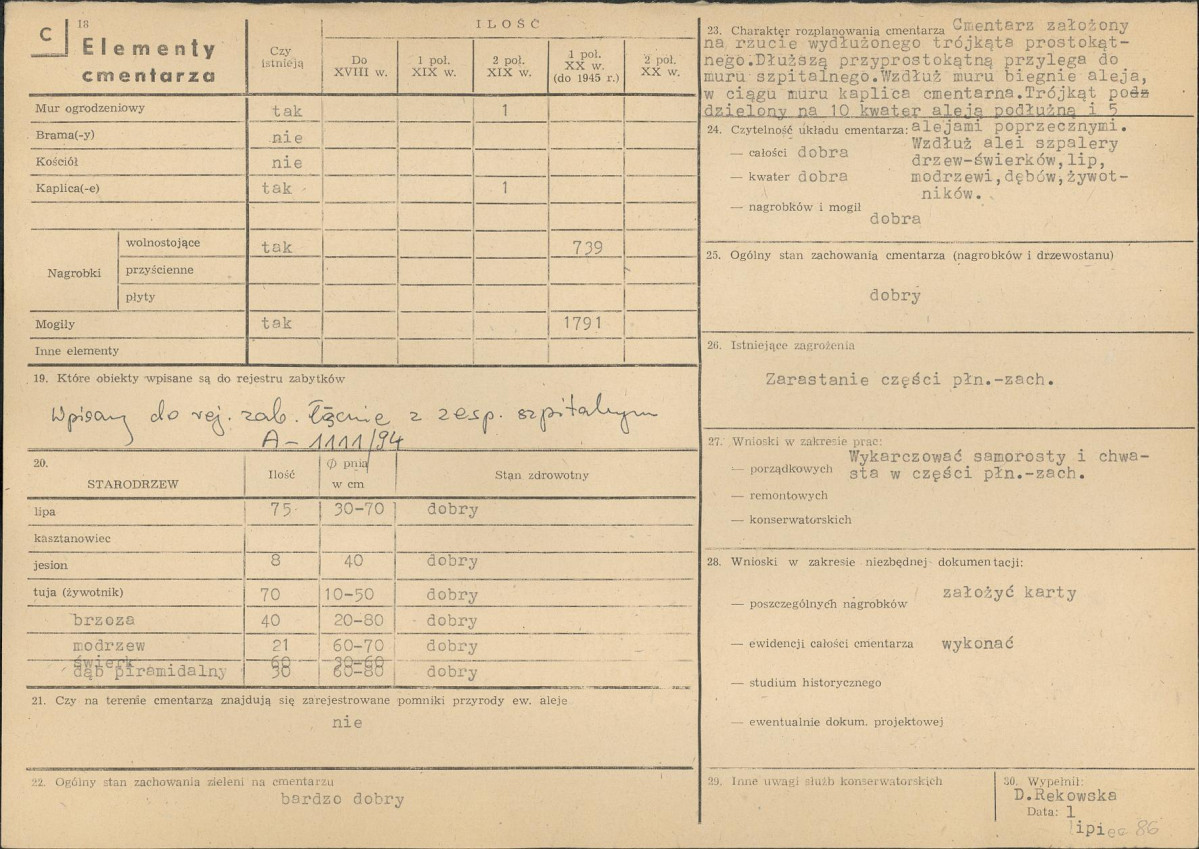 C
18
Elementy
cmentarza
Czy
istnieją
ILOŚĆ
Do
XVIII w.
1 poł.
XIX w.
2 poł.
XIX w.
1 poł.
XX w.
(do 1945 r.)
2 poł.
XX w.
Mur ogrodzeniowy tak 1
Brama(-y) nie
Kościół nie
Kaplica(-e) tak 1
Nagrobki
wolnostojące tak 739
przyścienne
płyty
Mogiły tak 1791
Inne elementy
19. Które obiekty wpisane są do rejestru zabytków
Wpisany do rej. zab. łącznie z zesp. szpitalnym
A-1111/94
20.
STARODRZEW
Ilość
Ø pnia
w cm
Stan zdrowotny
lipa 75 30-70 dobry
kasztanowiec
jesion 8 40 dobry
tuja (żywotnik) 70 10-50 dobry
brzoza 40 20-80 dobry
modrzew 21 60-70 dobry
świerk 60 30-60
dąb piramidalny 30 60-80 dobry
21. Czy na terenie cmentarza znajdują się zarejestrowane pomniki przyrody ew. aleje
nie
22. Ogólny stan zachowania zieleni na cmentarzu
bardzo dobry
23. Charakter rozplanowania cmentarza Cmentarz założony
na rzucie wydłużonego trójkąta prostokąt-
nego.Dłuższą przyprostokątną przylega do
muru szpitalnego.Wzdłuż muru biegnie aleja,
w ciągu muru kaplica cmentarna.Trójkąt podz
dzielony na 10 kwater aleją podłużną i 5
24. Czytelność układu cmentarza: alejami poprzecznymi.
Wzdłuż alei szpalery
— całości dobra drzew-świerków,lip,
— kwater dobra modrzewi,dębów,żywot-
ników.
— nagrobków i mogił
dobra
25. Ogólny stan zachowania cmentarza (nagrobków i drzewostanu)
dobry
26. Istniejące zagrożenia
Zarastanie części płn.-zach.
27. Wnioski w zakresie prac:
Wykarczować samorosty i chwa-
— porządkowych sta w części płn.-zach.
— remontowych
— konserwatorskich
28. Wnioski w zakresie niezbędnej dokumentacji:
założyć karty
— poszczególnych nagrobków
— ewidencji całości cmentarza wykonać
— studium historycznego
— ewentualnie dokum. projektowej
29. Inne uwagi służb konserwatorskich
30. Wypełnił:
D.Rękowska
Data: 1
lipiec 86